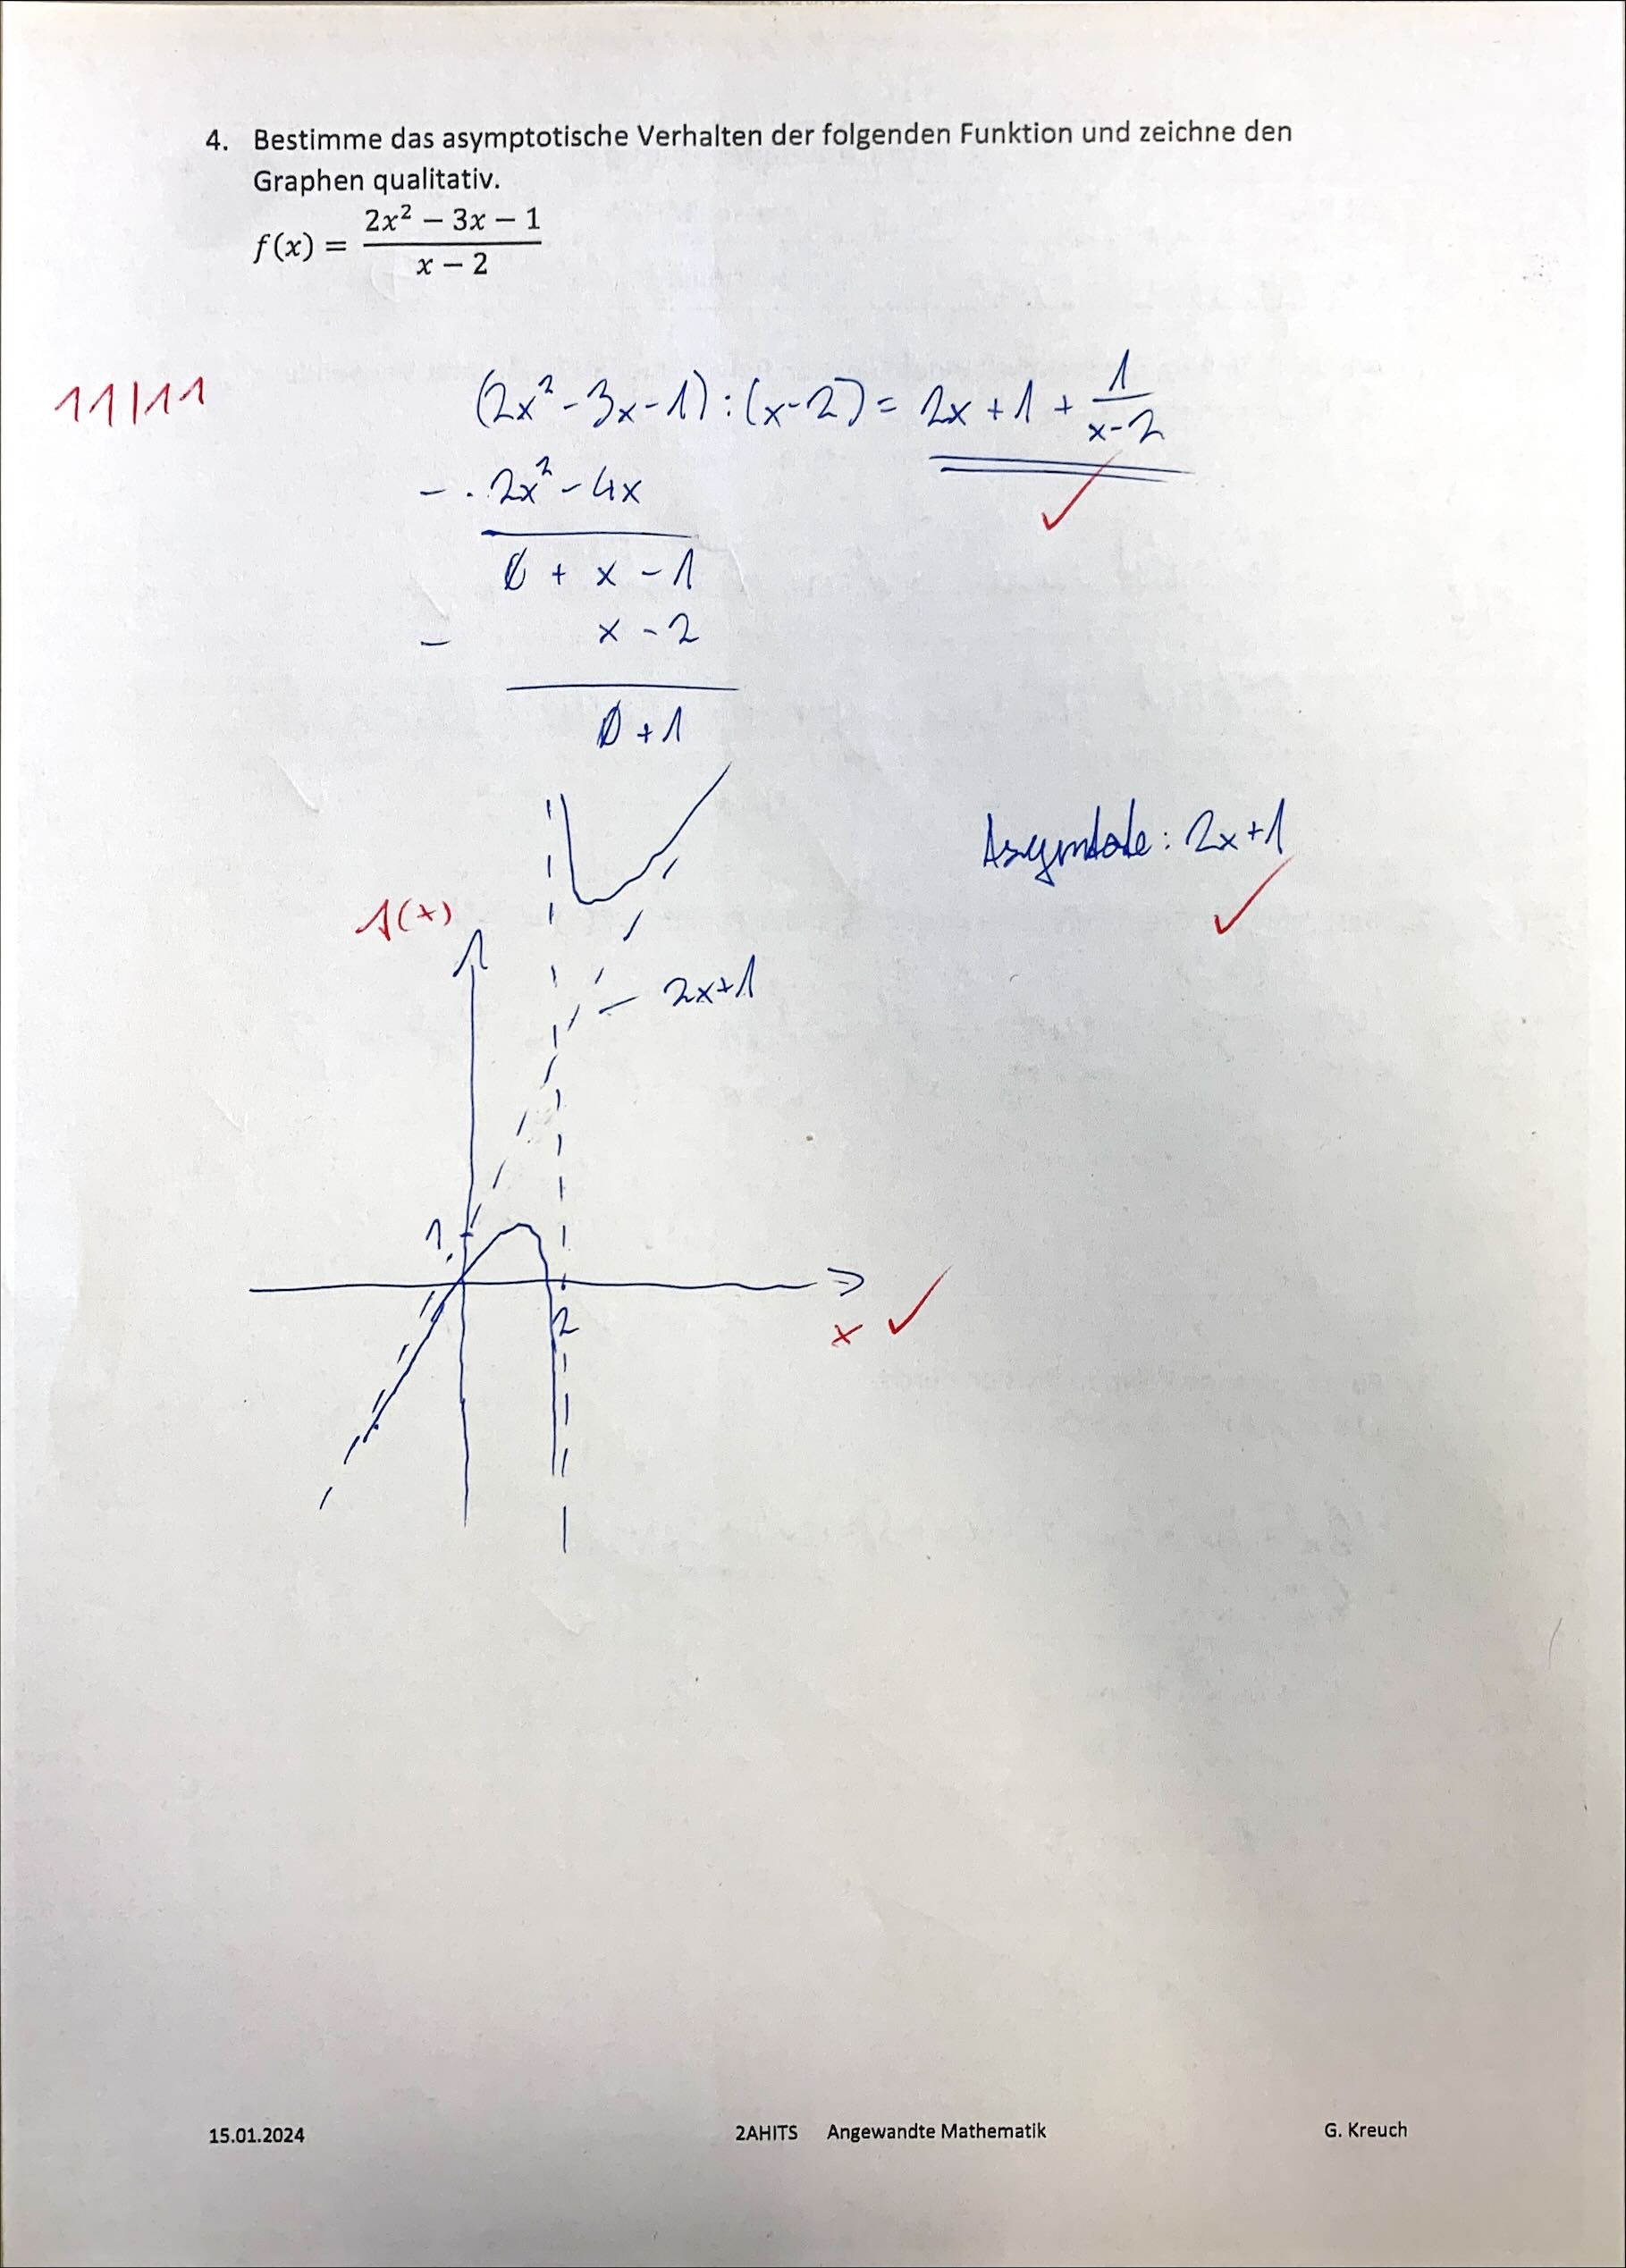 4. Bestimme das asymptotische Verhalten der folgenden Funktion und zeichne den
Graphen qualitativ.
f(x) = (2x² − 3x − 1)/(x − 2)
11|11
(2x² - 3x - 1) : (x-2) = 2x + 1 + 1/(x-2)
- 2x² - 4x
0 + x - 1
- x - 2
0 + 1
Asymtote: 2x+1
f(x)
2x+1
1
2
x
15.01.2024 2AHITS Angewandte Mathematik G. Kreuch